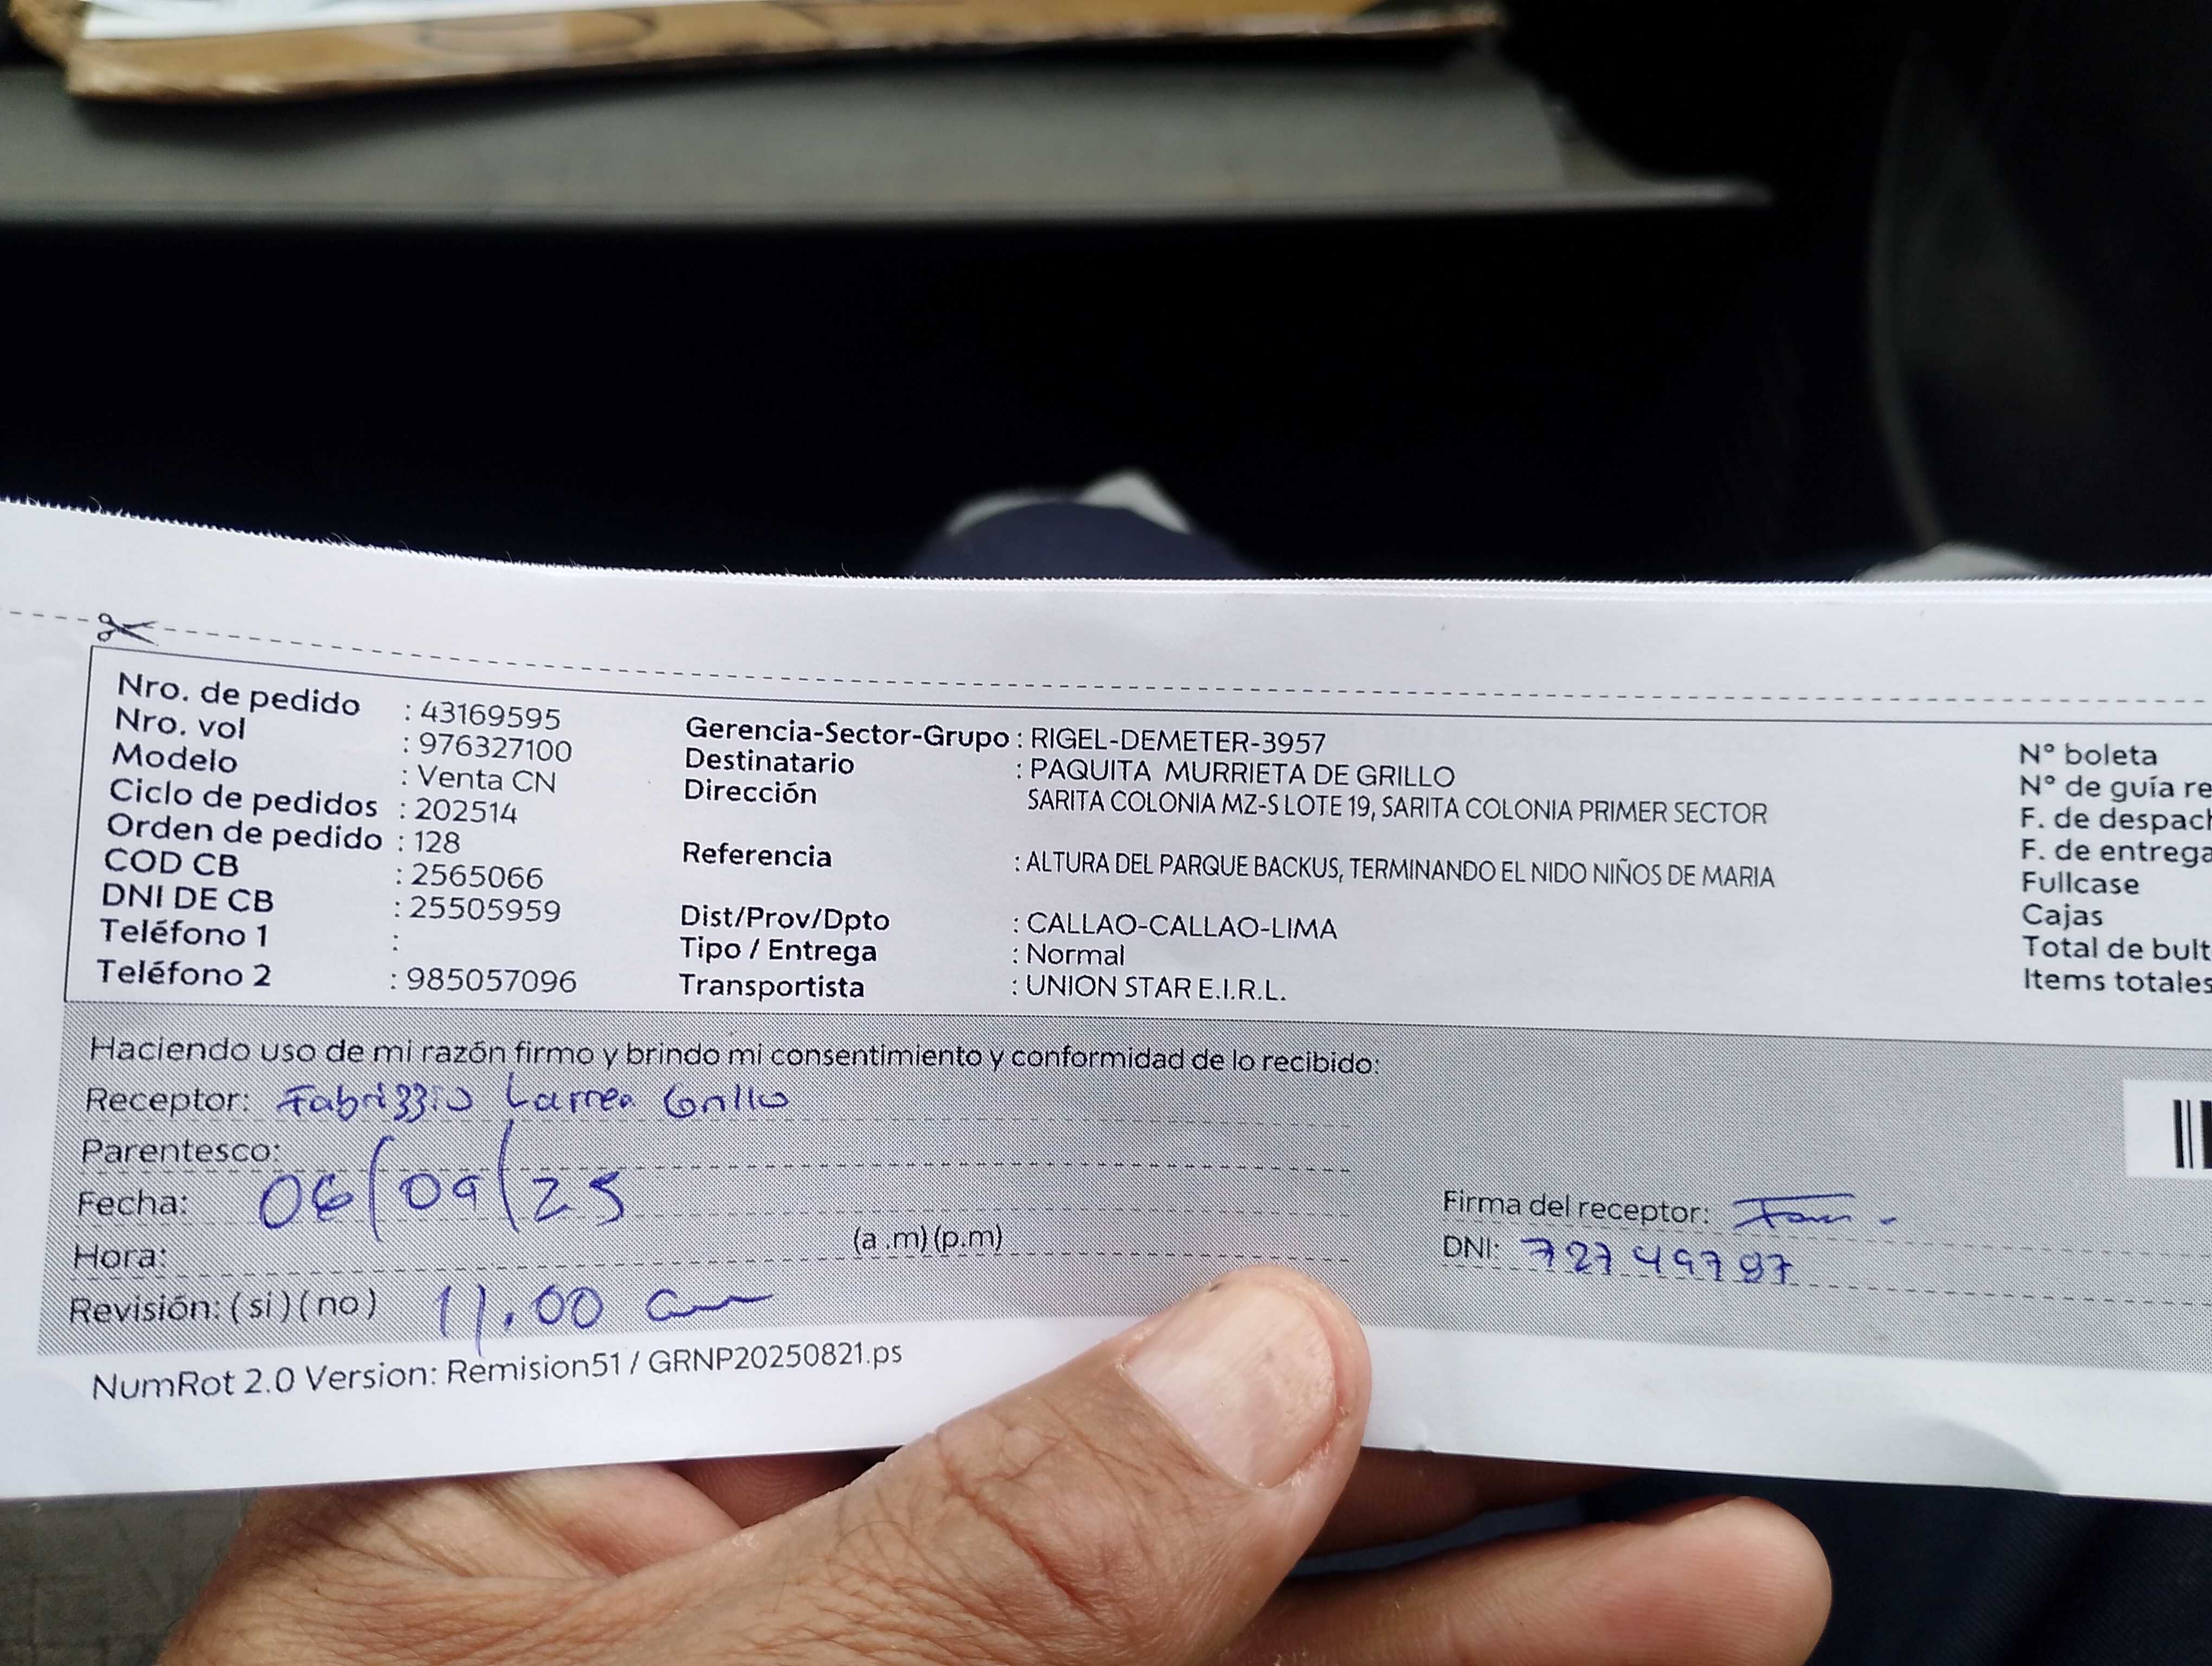 Nro. de pedido : 43169595
Nro. vol : 976327100
Modelo : Venta CN
Ciclo de pedidos : 202514
Orden de pedido : 128
COD CB : 2565066
DNI DE CB : 25505959
Teléfono 1 :
Teléfono 2 : 985057096
Gerencia-Sector-Grupo : RIGEL-DEMETER-3957
Destinatario : PAQUITA MURRIETA DE GRILLO
Dirección SARITA COLONIA MZ-S LOTE 19, SARITA COLONIA PRIMER SECTOR
Referencia : ALTURA DEL PARQUE BACKUS, TERMINANDO EL NIDO NIÑOS DE MARIA
Dist/Prov/Dpto : CALLAO-CALLAO-LIMA
Tipo / Entrega : Normal
Transportista : UNION STAR E.I.R.L.
N° boleta
N° de guía re
F. de despach
F. de entrega
Fullcase
Cajas
Total de bult
Items totales
Haciendo uso de mi razón firmo y brindo mi consentimiento y conformidad de lo recibido:
Receptor: Fabrizzio Larrea Grillo
Parentesco:
Fecha: 06/09/25
Hora: (a .m) (p.m)
Revisión: (si) (no) 11.00 am
Firma del receptor:
DNI: 72749797
NumRot 2.0 Version: Remision51 / GRNP20250821.ps